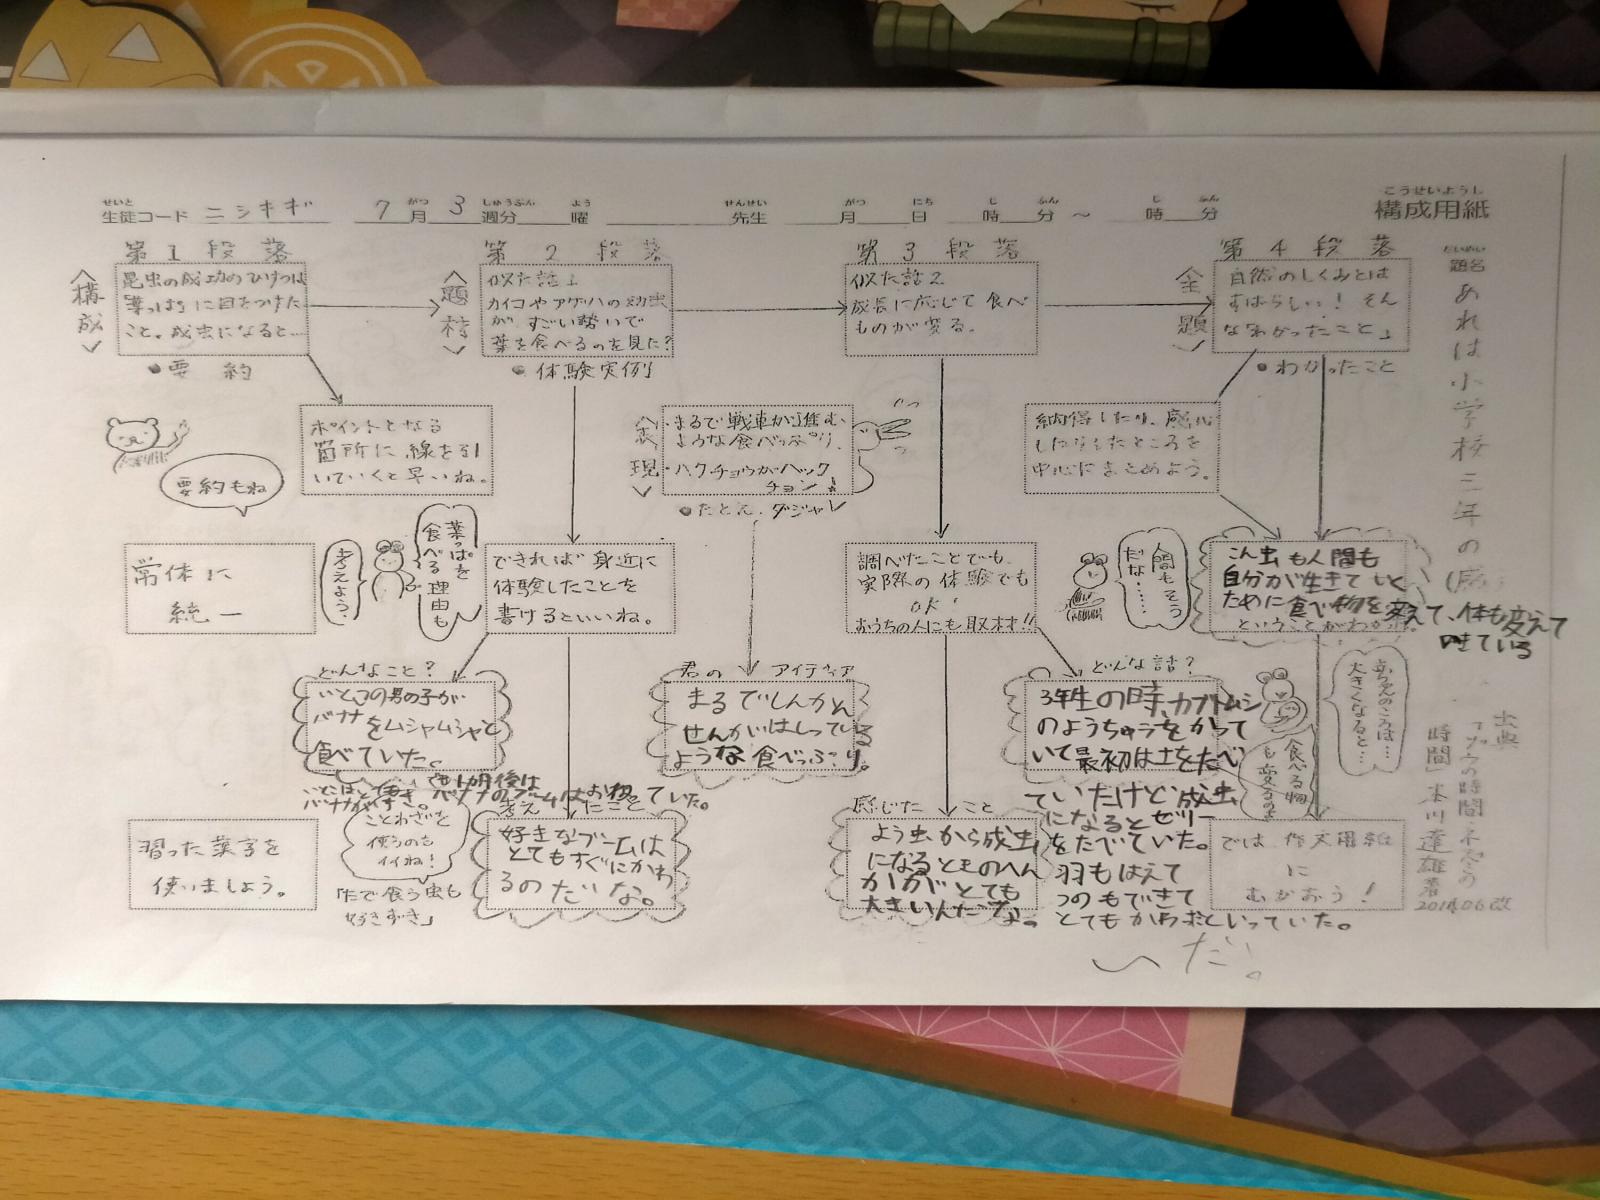 こうせいようし
構成用紙
せいと
生徒コード ニシキギ
7月 3週分 曜 先生 月 日 時 分 ～ 時 分
がつ しゅうぶん よう せんせい がつ にち じ ふん じ ふん
だいめい
題名
あれは小学校三年の
出典
時間」本川達雄著
2014.06改
第1段落
〈構成〉
昆虫の成功のひけつは
葉っぱに目をつけた
こと。成虫になると…
●要約
ポイントとなる
箇所に線を引
いていくと早いね。
要約もね
常体に
統一
習った漢字を
使いましょう。
第2段落
〈題材〉
似た話1
カイコやアゲハの幼虫
が、すごい勢いで
葉を食べるのを見た?
●体験実例
葉っぱを
食べる理由も
考えよう。
できれば身近に
体験したことを
書けるといいね。
どんなこと?
いとこの男の子が
バナナをムシャムシャと
食べていた。
バナナが好き。
バナナのブームはおわっていた。
ことわざを
使うのも
イイね!
「たで食う虫も
好きずき」
考えたこと
好きなブームは
とてもすぐにかわ
るのだな。
〈表現〉
・まるで戦車が進む
ような食べっぷり。
・ハクチョウがハック
チョン!
●たとえ.ダジャレ
君のアイディア
まるでしんかん
せんがはしっている
ような食べっぷり。
第3段落
似た話2
成長に応じて食べ
ものが変る。
調べたことでも、
実際の体験でも
OK!
おうちの人にも取材!!
どんな話?
3年生の時、カブトムシ
のようちゅうをかって
いて最初は土をたべ
ていたけど成虫
になるとゼリー
をたべていた。
羽もはえて
つのもできて
感じたこと
よう虫から成虫
になるとものへん
かがとても
大きいんだな。
〜だ。
第4段落
〈全題〉
自然のしくみとは
すばらしい! そん
な「わかったこと」
●わかったこと
納得したり、感心
したりしたところを
中心にまとめよう。
人間もそう
だな……
こん虫も人間も
自分が生きていく
ために食べ物を変えて、体も変えて
いきている
ということがわかった。
赤ちゃんのころは…
大きくなると…
食べる物
も変るのよ
では、作文用紙
に
むかおう!